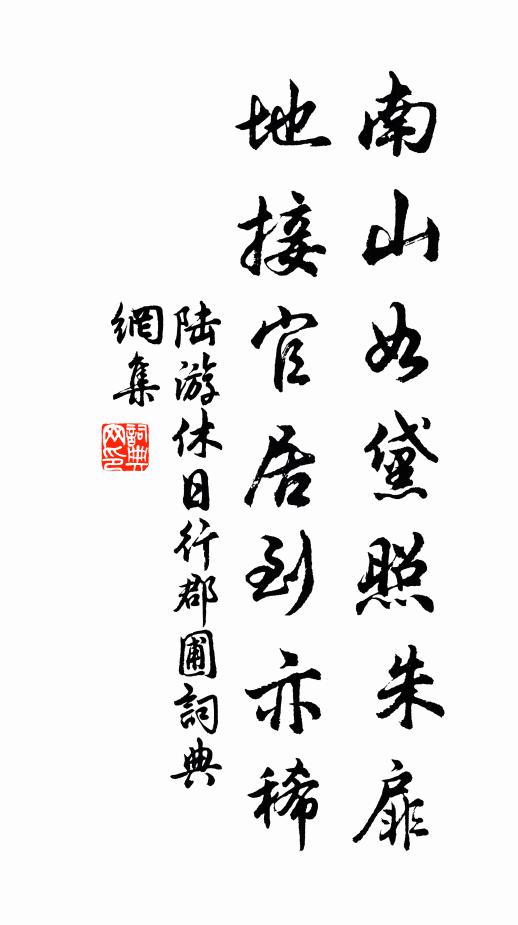 南山如黛照朱扉
地接官居到亦稀
陆游休日行郡圃詞典
網集
詞典网印